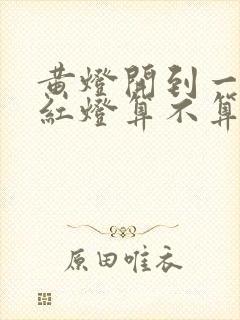 黄燈開到一
紅燈算不算
原田唯衣